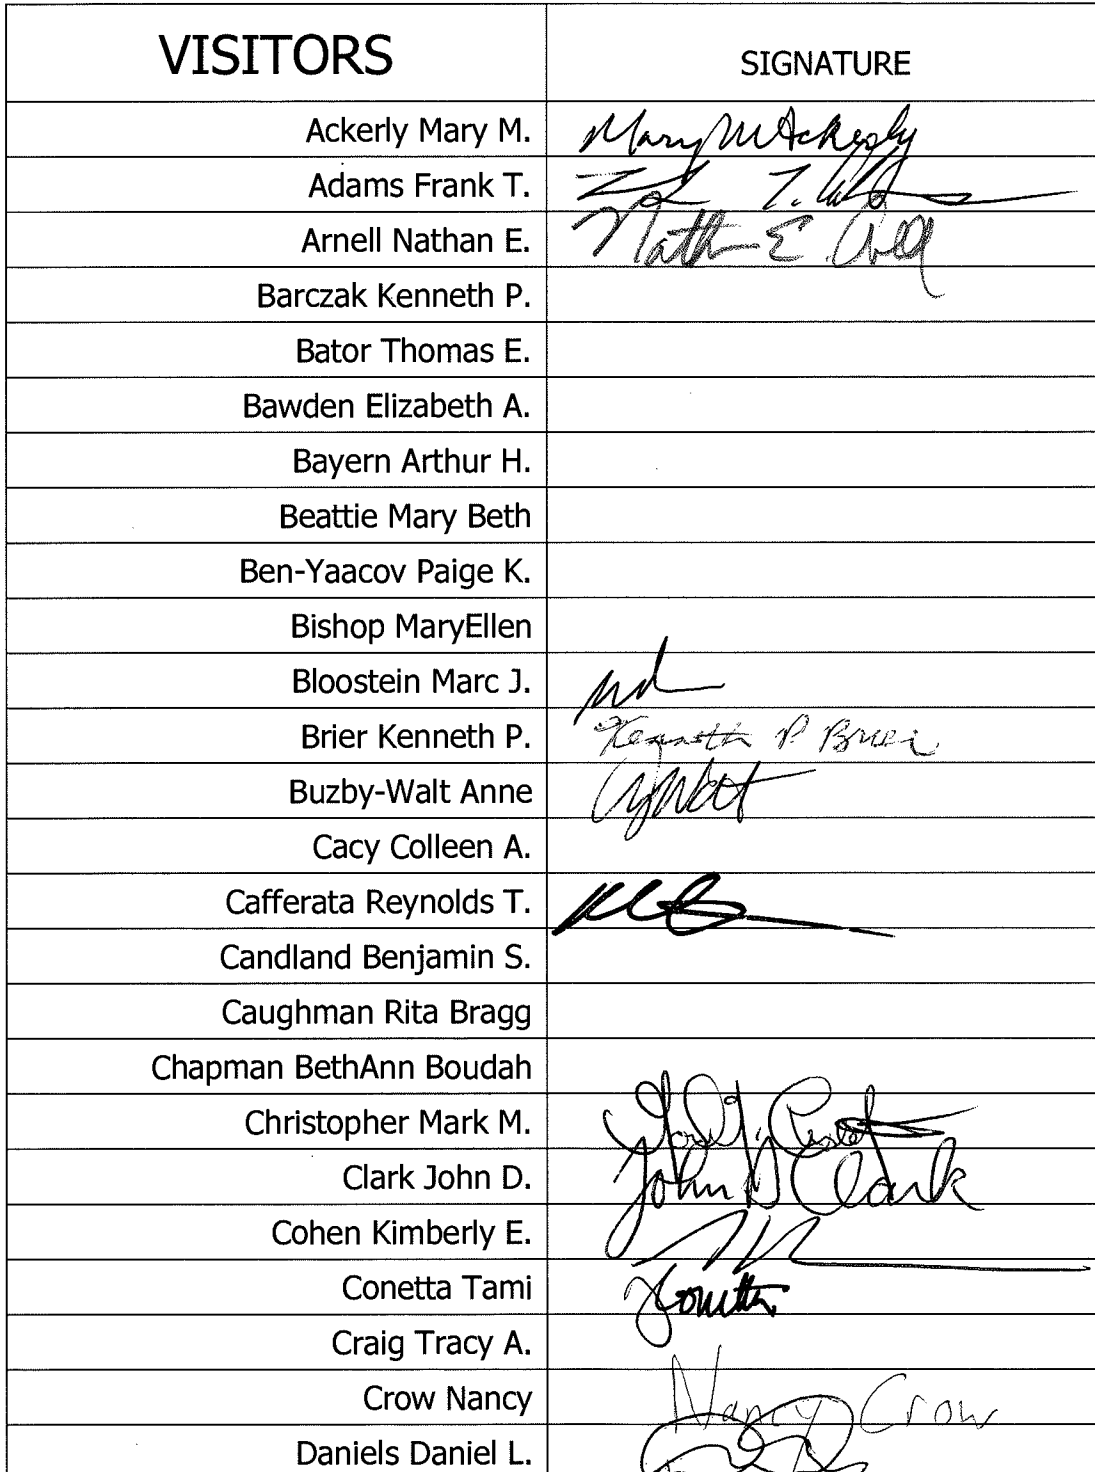 VISITORS SIGNATURE
Ackerly Mary M. Mary M Ackerly
Adams Frank T.
Arnell Nathan E. Nathan E. Arnell
Barczak Kenneth P.
Bator Thomas E.
Bawden Elizabeth A.
Bayern Arthur H.
Beattie Mary Beth
Ben-Yaacov Paige K.
Bishop MaryEllen
Bloostein Marc J.
Brier Kenneth P. Kenneth P Brier
Buzby-Walt Anne
Cacy Colleen A.
Cafferata Reynolds T.
Candland Benjamin S.
Caughman Rita Bragg
Chapman BethAnn Boudah
Christopher Mark M.
Clark John D. John D Clark
Cohen Kimberly E.
Conetta Tami
Craig Tracy A.
Crow Nancy Nancy Crow
Daniels Daniel L.